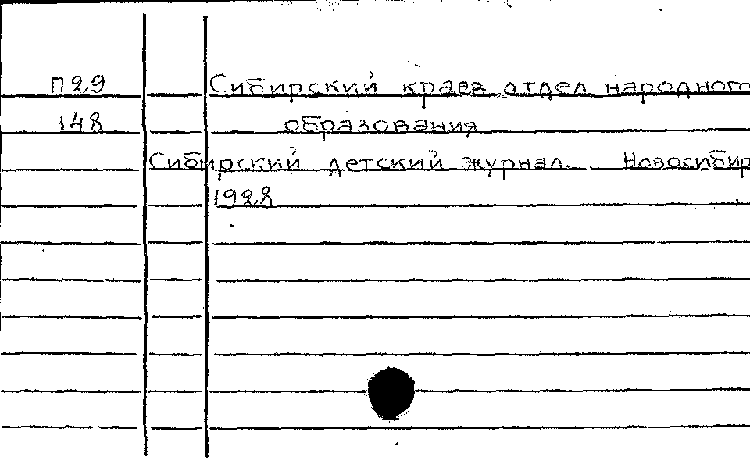 П29 Сибирский краев отдел народног
148 образования
Сибирский детский журнал. Новосибир
1928